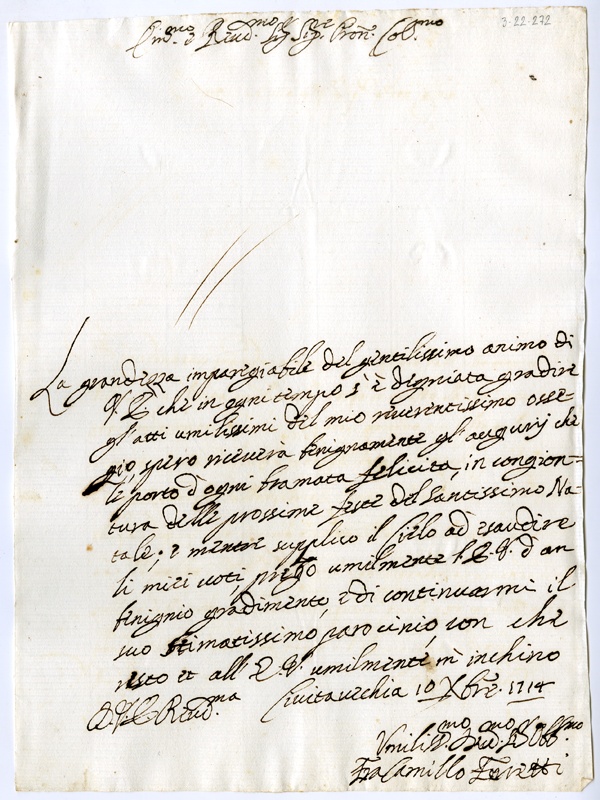 3-22-272
Em.mo e Reud.mo Sig.r Sig.re Pron. Col.mo
La grandezza impareggiabile del gentilissimo animo di
V.E. che in ogni tempo s'è degniata gradire
gl'atti umilissimi del mio reverentissimo osse
quio, spero riceverà benignamente gl'augurij che
le porto d'ogni bramata felicità, in congion=
tura delle prossime feste del Santissimo Na=
tale; e mentre supplico il Cielo ad esaudire
li miei voti, prego umilmente l'E.V. d'un
benignio gradimento, e di continuarmi il
suo stimatissimo patrocinio, con che
resto et all'E.V. umilmente m'inchino
D.V.E. Reud.ma Civitavechia 10 Xbre. 1714
Umilis.mo Dev.mo Obb.mo
Fra Camillo Feretti